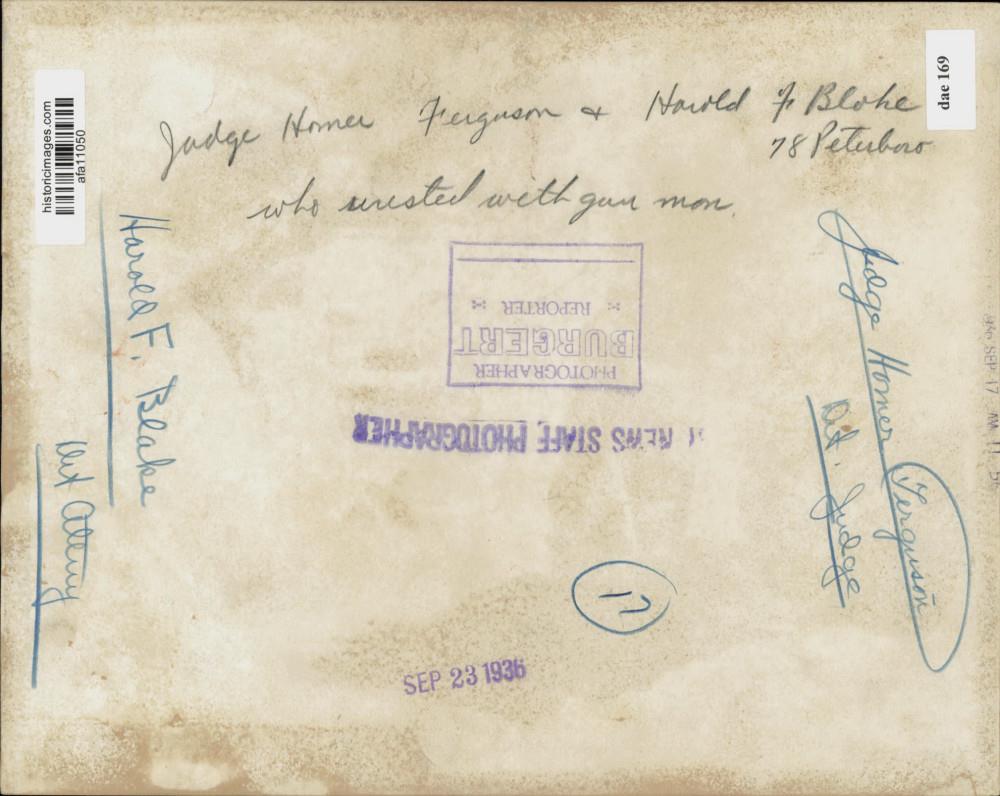 historicimages.com
afa11050
dae 169
Judge Homer Ferguson & Harold F Blake
78 Peterboro
who wrested with gun man.
Harold F. Blake
Det Attorney
Judge Homer Ferguson
Det. Judge
PHOTOGRAPHER
BURGERT
REPORTER
NEWS STAFF PHOTOGRAPHER
17
SEP 23 1936
SEP 17 AM 11